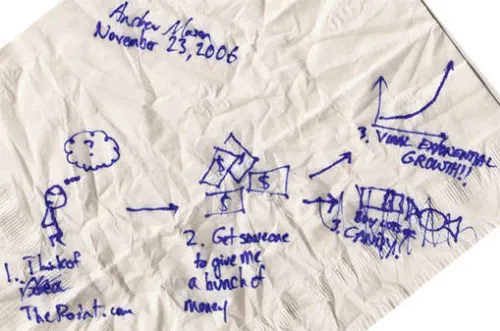 Andrew Mason
November 23, 2006
?
1. Think of
ThePoint.com
$
$
$
2. Get someone
to give me
a bunch of
money
3. VIRAL EXPONENTIAL
GROWTH!!
BUY LOTS OF
3. CANDY!